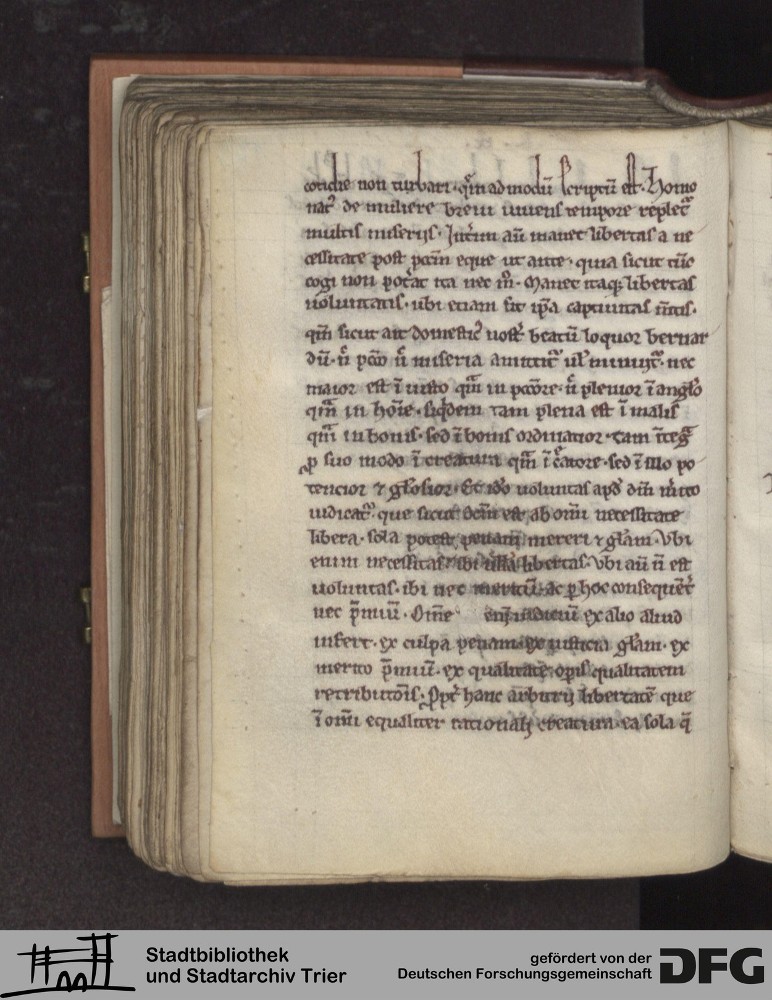 cotidie non turbari · q̄m admodū scriptū est · Homo
nat᷒ de muliere breui uiuens tempore replet᷒
multis miserijs · Int̄im aū manet libertas a ne
cessitate post pccm̄ eque ut ante · quia sicut tūc
cogi non pot̄at ita nec m̊ · Manet itaq; libertas
uoluntatis · ubi etiam fit ip̄a captiuitas m̄tis ·
qm̄ sicut ait domestic᷒ uost᷒ beatū loquor bernar
dū · n̄ pccō n̄ miseria amittit᷒ ul̄ minuit᷒ · nec
maior est ī iusto qm̄ in pccōre · n̄ plenior ī angl̄o
qm̄ in hoīe · siq̇dem tam plena est ī malis
qm̄ in bonis · sed ī bonis ordinatior · tam īteg̃
ꝓ suo modo ī creatura qm̄ ī c̃atore · sed ī illo po
tencior ⁊ gl̄osior · Et id̊o uoluntas apd̄ dm̄ m̄ito
iudicat᷒ · que sicut dcm̄ est ab omī necessitate
libera · sola potest penam mereri ⁊ gl̄am · Vbi
enim necessitas · ibi nulla libertas · Vbi aū n̄ est
uoluntas · ibi nec meritū · ac ꝑ hoc consequēt᷒
nec p̄miū · Om̄e eni iudiciū ex alio aliud
infert · ex culpa penam · ex iusticia gl̄am · ex
merito p̄miū · ex qualitate opis̄ qualitatem
retributōis · Ppt᷒ hanc arbitrij libertatē que
ī omī equaliter rationali creatura · ea sola q̄
Stadtbibliothek
und Stadtarchiv Trier
gefördert von der
Deutschen Forschungsgemeinschaft
DFG